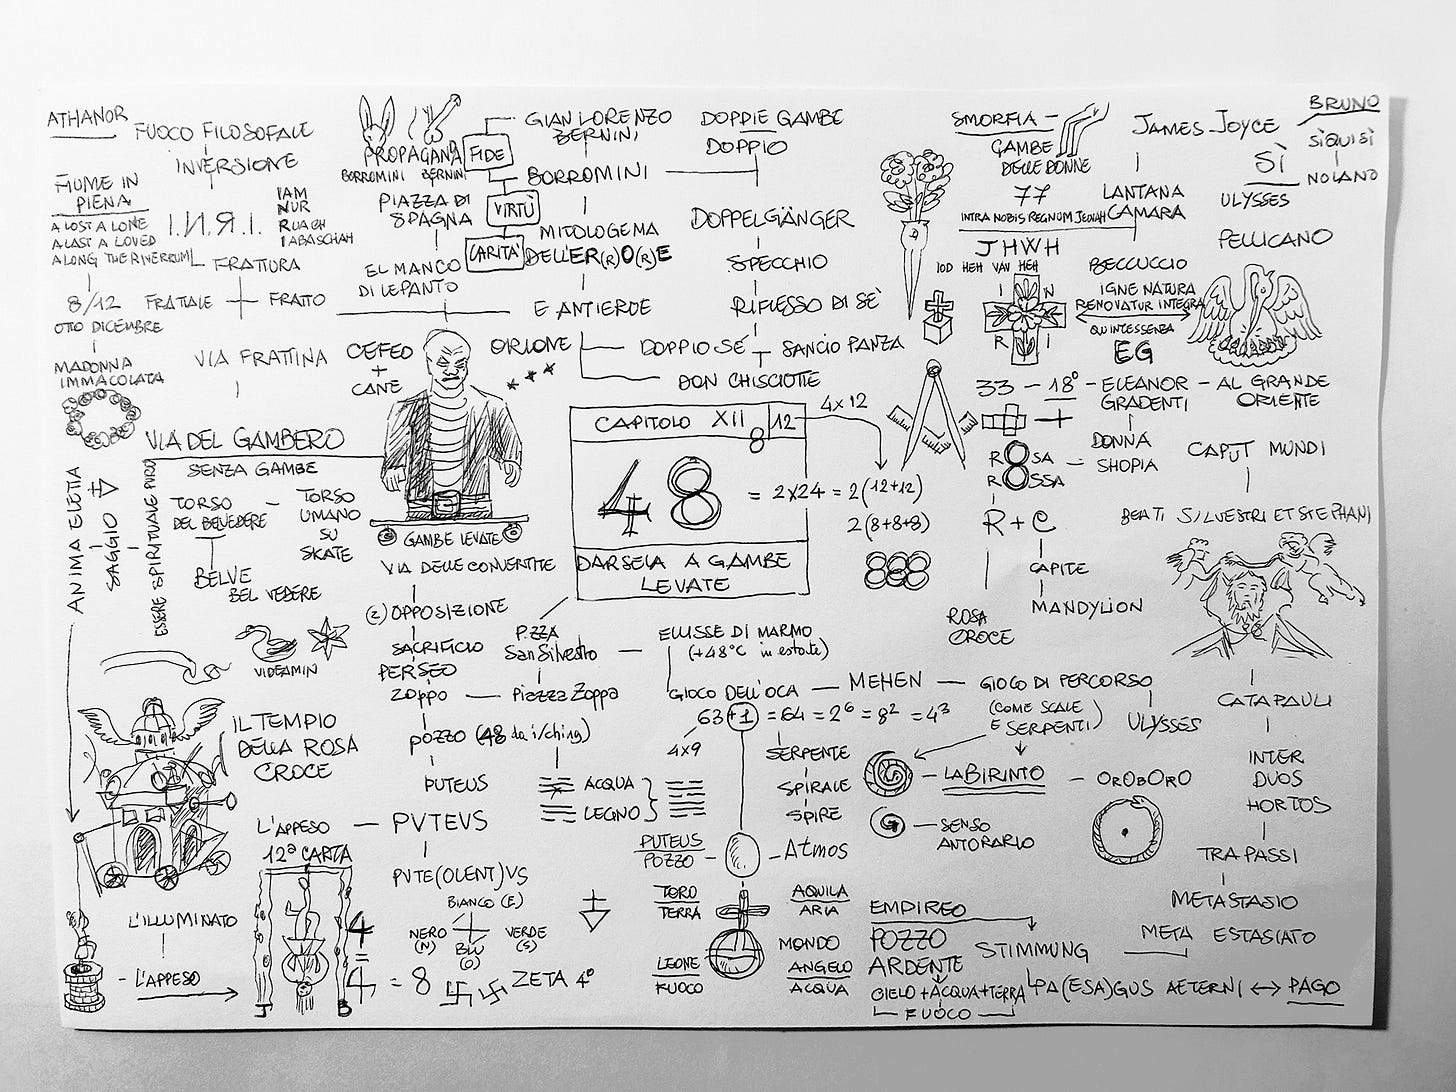 ATHANOR
FUOCO FILOSOFALE
INVERSIONE
FIUME IN
PIENA
A LOST A LONE
A LAST A LOVED
ALONG THE RIVERRUN
I.N.R.I.
IAM
NUR
RUACH
IABASCHAH
FRATTURA
8/12
FRATTALE
FRATTO
OTTO DICEMBRE
MADONNA
IMMACOLATA
VIA FRATTINA
VIA DEL GAMBERO
SENZA GAMBE
TORSO
DEL BELVEDERE
TORSO
UMANO
SU
SKATE
BELVE
BEL VEDERE
ANIMA ELETTA
SAGGIO
ESSERE SPIRITUALE PURO
VIDEAMIN
IL TEMPIO
DELLA ROSA
CROCE
L'APPESO
12ª CARTA
L'ILLUMINATO
L'APPESO
J
B
PROPAGANDA
FIDE
BORROMINI
BERNINI
PIAZZA DI
SPAGNA
VIRTÙ
CARITA'
GIAN LORENZO
BERNINI
BORROMINI
MITOLOGEMA
DELL'ER(R)O(R)E
EL MANCO
DI LEPANTO
E ANTIEROE
CEFEO
+
CANE
ORIONE
GAMBE LEVATE
VIA DELLE CONVERTITE
(2) OPPOSIZIONE
SACRIFICIO
PERSEO
ZOPPO
PIAZZA ZOPPA
P.ZZA
San Silvestro
POZZO (48 da i/ching)
PUTEUS
ACQUA
LEGNO
PVTEVS
PVTE(OLENT)VS
BIANCO (E)
NERO
(N)
VERDE
(S)
BLU
(O)
4
=
4 = 8
ZETA 4°
DOPPIE GAMBE
DOPPIO
DOPPELGÄNGER
SPECCHIO
RIFLESSO DI SÈ
DOPPIO SÉ
SANCIO PANZA
DON CHISCIOTTE
CAPITOLO XII
12
8
48
DARSELA A GAMBE
LEVATE
4x12
= 2x24 = 2(12+12)
2(8+8+8)
ELLISSE DI MARMO
(+48°C in estate)
GIOCO DELL'OCA
MEHEN
GIOCO DI PERCORSO
(COME SCALE
E SERPENTI)
ULYSSES
63+1 = 64 = 2⁶ = 8² = 4³
4x9
SERPENTE
SPIRALE
SPIRE
LABIRINTO
OROBORO
SENSO
ANTIORARIO
PUTEUS
POZZO
Atmos
TORO
TERRA
AQUILA
ARIA
MONDO
LEONE
FUOCO
ANGELO
ACQUA
EMPIREO
POZZO
ARDENTE
STIMMUNG
CIELO + ACQUA + TERRA
FUOCO
PA(ESA)GUS AETERNI ↔ PAGO
SMORFIA
GAMBE
DELLE DONNE
77
INTRA NOBIS REGNUM JEOVAH
JHWH
IOD HEH VAV HEH
I
N
R
I
JAMES JOYCE
BRUNO
SÌ
SÌQUISÌ
NOLANO
ULYSSES
LANTANA
CAMARA
PELLICANO
BECCUCCIO
IGNE NATURA
RENOVATUR INTEGRA
QUINTESSENZA
EG
33 - 18° - ELEANOR - AL GRANDE
GRADENTI
ORIENTE
DONNA
SHOPIA
ROSA
ROSSA
R + C
CAPITE
MANDYLION
ROSA
CROCE
CAPUT MUNDI
BEATI SILVESTRI ET STEPHANI
CATAPAULI
INTER
DUOS
HORTOS
TRAPASSI
METASTASIO
META ESTASIATO